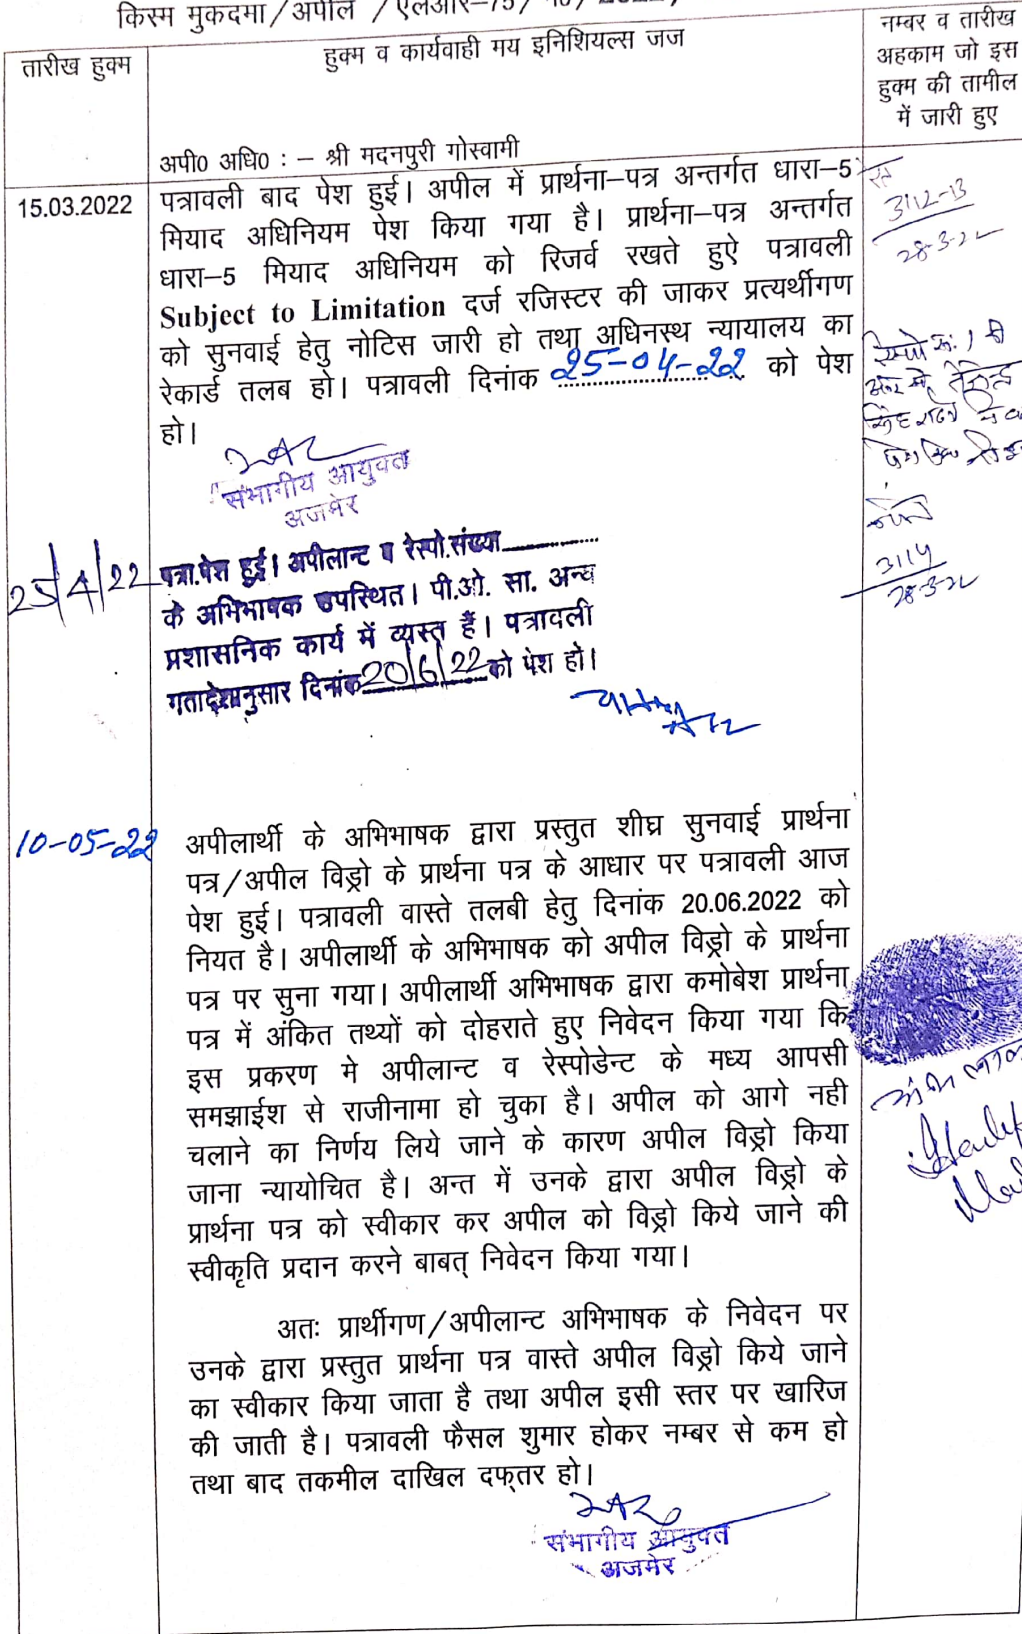 किस्म मुकदमा/अपील /एलआर–75/
तारीख हुक्म
हुक्म व कार्यवाही मय इनिशियल्स जज
नम्बर व तारीख
अहकाम जो इस
हुक्म की तामील
में जारी हुए
अपी0 अधि0 : – श्री मदनपुरी गोस्वामी
15.03.2022
पत्रावली बाद पेश हुई। अपील में प्रार्थना–पत्र अन्तर्गत धारा–5
मियाद अधिनियम पेश किया गया है। प्रार्थना–पत्र अन्तर्गत
धारा–5 मियाद अधिनियम को रिजर्व रखते हुऐ पत्रावली
Subject to Limitation दर्ज रजिस्टर की जाकर प्रत्यर्थीगण
को सुनवाई हेतु नोटिस जारी हो तथा अधिनस्थ न्यायालय का
रेकार्ड तलब हो। पत्रावली दिनांक 25-04-22 को पेश
हो।
3112-13
28-3-22
संभागीय आयुक्त
अजमेर
3114
28-3-22
25/4/22
पत्रा.पेश हुई। अपीलान्ट व रेस्पो.संख्या
के अभिभाषक उपस्थित। पी.ओ. सा. अन्य
प्रशासनिक कार्य में व्यस्त हैं। पत्रावली
गतादेशानुसार दिनांक 20/6/22 को पेश हो।
10-05-22
अपीलार्थी के अभिभाषक द्वारा प्रस्तुत शीघ्र सुनवाई प्रार्थना
पत्र/अपील विड्रो के प्रार्थना पत्र के आधार पर पत्रावली आज
पेश हुई। पत्रावली वास्ते तलबी हेतु दिनांक 20.06.2022 को
नियत है। अपीलार्थी के अभिभाषक को अपील विड्रो के प्रार्थना
पत्र पर सुना गया। अपीलार्थी अभिभाषक द्वारा कमोबेश प्रार्थना
पत्र में अंकित तथ्यों को दोहराते हुए निवेदन किया गया कि
इस प्रकरण मे अपीलान्ट व रेस्पोडेन्ट के मध्य आपसी
समझाईश से राजीनामा हो चुका है। अपील को आगे नही
चलाने का निर्णय लिये जाने के कारण अपील विड्रो किया
जाना न्यायोचित है। अन्त में उनके द्वारा अपील विड्रो के
प्रार्थना पत्र को स्वीकार कर अपील को विड्रो किये जाने की
स्वीकृति प्रदान करने बाबत् निवेदन किया गया।
अतः प्रार्थीगण/अपीलान्ट अभिभाषक के निवेदन पर
उनके द्वारा प्रस्तुत प्रार्थना पत्र वास्ते अपील विड्रो किये जाने
का स्वीकार किया जाता है तथा अपील इसी स्तर पर खारिज
की जाती है। पत्रावली फैसल शुमार होकर नम्बर से कम हो
तथा बाद तकमील दाखिल दफ्तर हो।
संभागीय आयुक्त
अजमेर